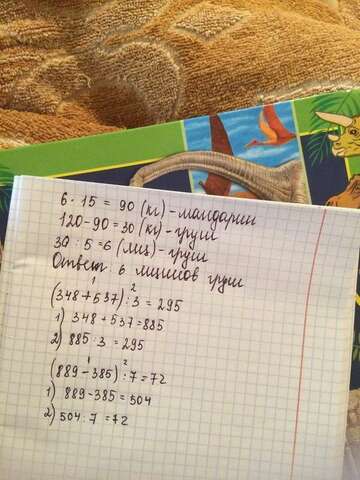 6 · 15 = 90 (кг) - мандарин
120 - 90 = 30 (кг) - груш
30 : 5 = 6 (ящ) - груш
Ответ: 6 ящиков груш
1 2
(348 + 537) : 3 = 295
1) 348 + 537 = 885
2) 885 : 3 = 295
1 2
(889 - 385) : 7 = 72
1) 889 - 385 = 504
2) 504 : 7 = 72